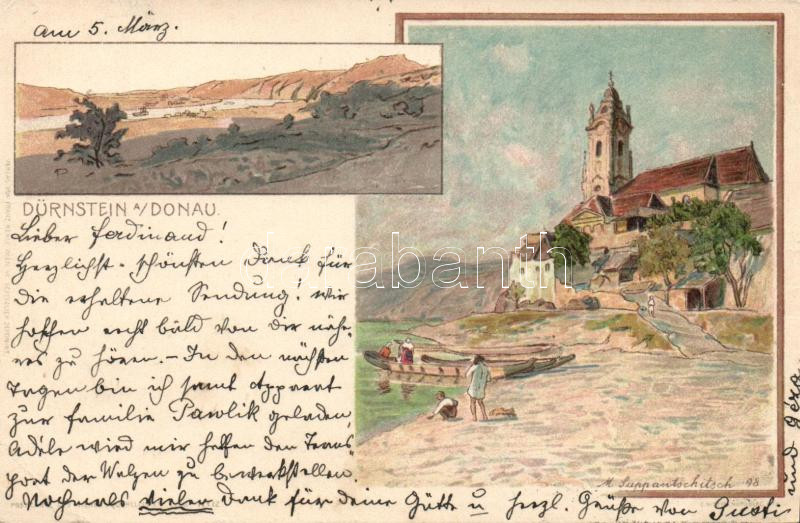 am 5. März.
DÜRNSTEIN A/DONAU.
Lieber Ferdinand!
Herzlichst-schönsten Dank für
die erhaltene Sendung! wir
hoffen recht bald von dir näh-
res zu hören. – In den nächsten
Tagen bin ich samt Apparat
zur Familie Pawlik geladen,
Adèle wird mir helfen den Trans-
port der Walzen zu bewerkstellen.
Nochmals vielen Dank für deine Gütte u herzl. Grüße von Gusti
und Géza
M. Suppantschitsch 98
darabanth